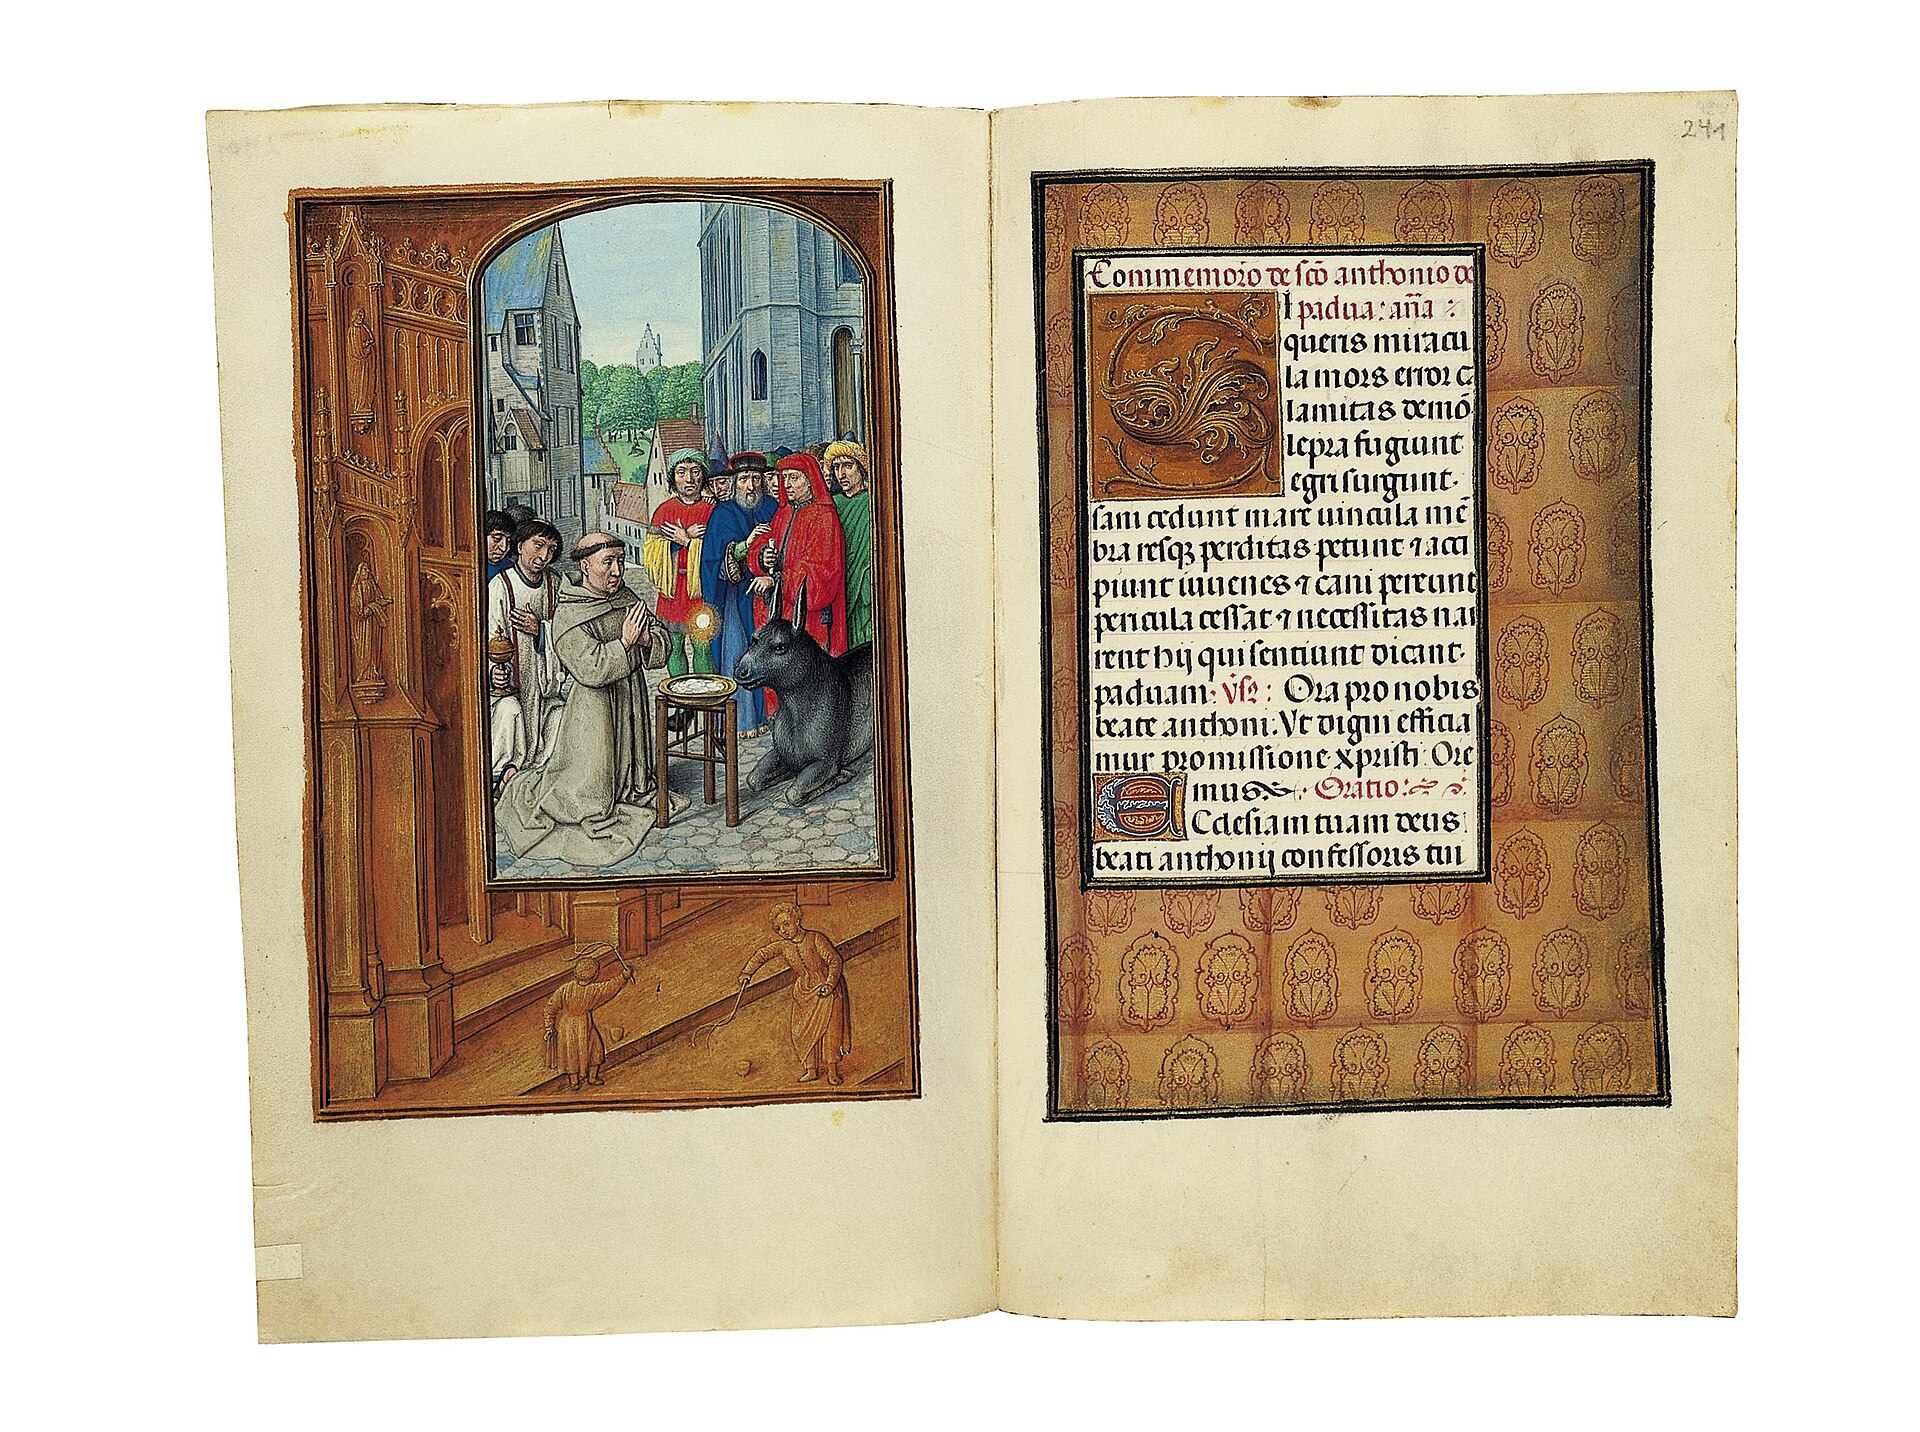 241
Commemoro de sco anthonio de
I padua: ana:
Squeris miracu
la mors error ca
lamitas demo
lepra fugiunt
egri surgunt.
sani cedunt mare vincula me
bra resq perditas petunt ⁊ acci
piunt iuvenes ⁊ cani pereunt
pericula cessat ⁊ necessitas nar
rent hij qui sentiunt dicant
paduani: Vsꝰ: Ora pro nobis
beate anthoni. Vt digni efficia
mur promissione xpristi. Ore
mus. Oratio:
ECclesiam tuam deus
beati anthonij confessoris tui